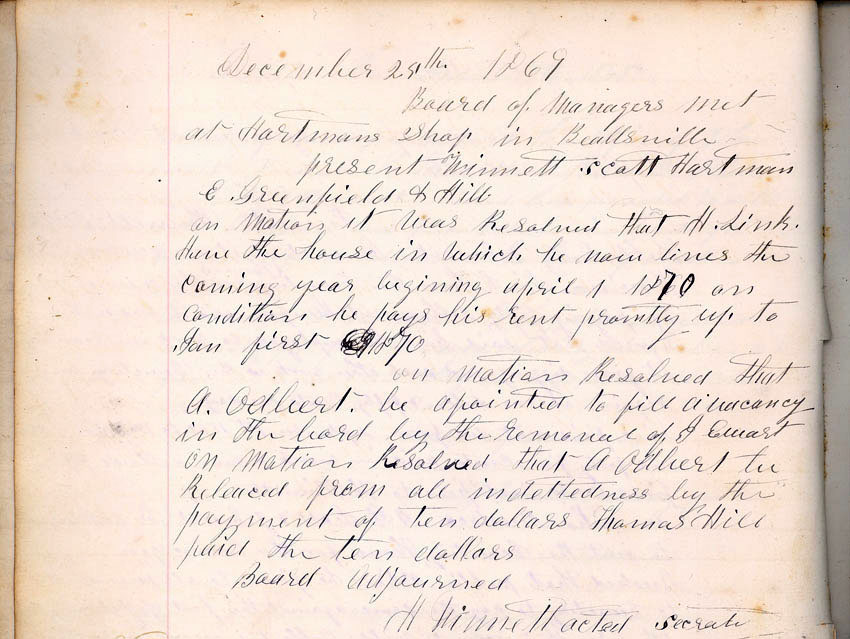 December 29th 1869
Board of Managers met
at Hartmans Shop in Beallsville
present Minnett Scott Hartman
E. Greenfield & Hill
on Motion it was Resolved that H. Link.
Have the house in which he now lives the
coming year begining april 1 1870 on
Condition he pays his rent promtly up to
Jan first 1870
on motion Resolved that
A. Odbert. be apointed to fill a vacancy
in the bord by the removal of J Ewart
on Motion Resolved that A Odbert be
Releaced from all indettedness by the
payment of ten dollars Thomas Hill
paid the ten dollars
Board Adjourned
H Minnett acted Secrata